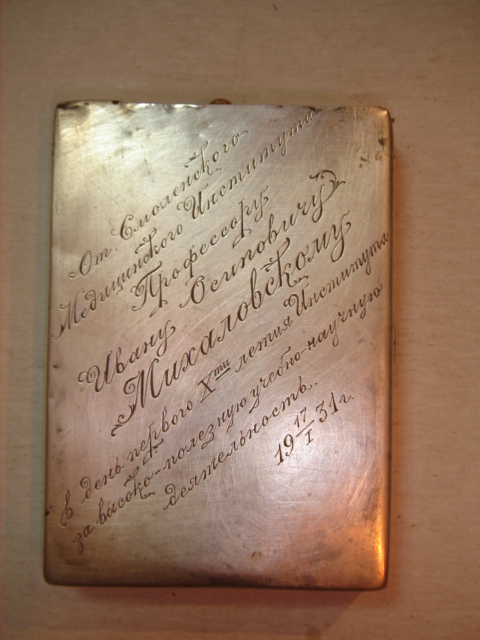 От Смоленского
Медицинского Института
Профессору
Ивану Осиповичу
Михаловскому
В день первого Xти летия Института
за высоко-полезную учебно-научную
деятельность..
19 17/I 31 г.